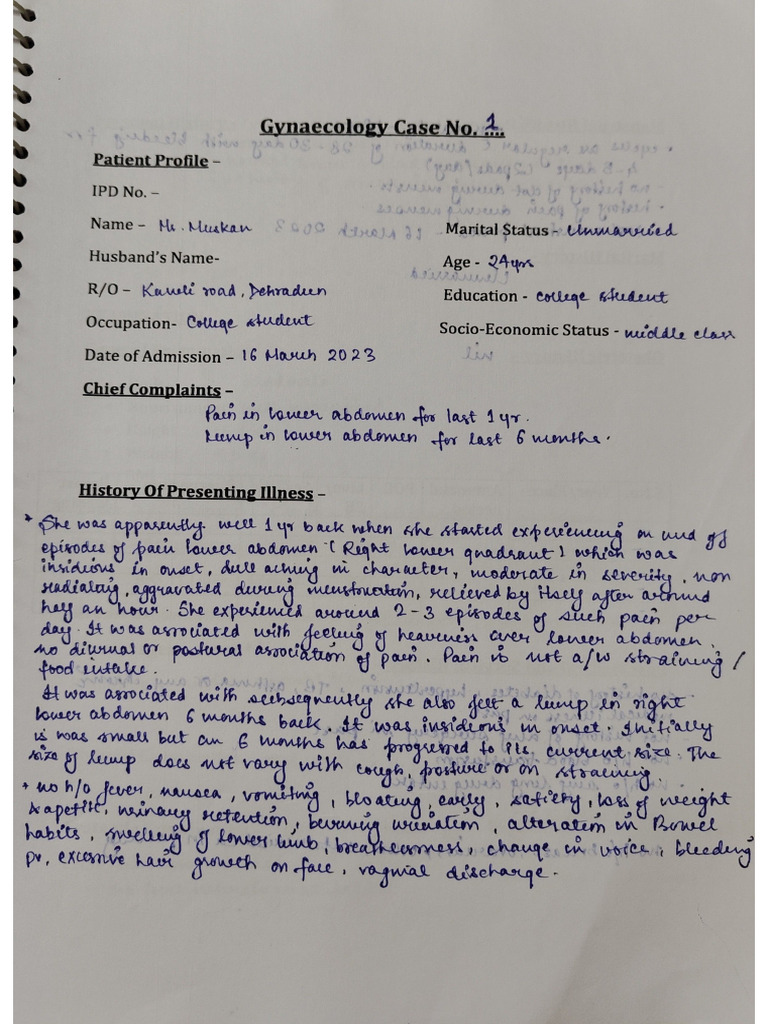 Gynaecology Case No. 1
Patient Profile –
IPD No. –
Name – Ms. Muskan
Marital Status - Unmarried
Husband's Name-
Age - 24yrs
R/O – Kaneli road, Dehradun
Education - college student
Occupation- College student
Socio-Economic Status - middle class
Date of Admission – 16 March 2023
Chief Complaints –
Pain in lower abdomen for last 1 yr.
Lump in lower abdomen for last 6 months.
History Of Presenting Illness –
* She was apparently well 1 yr back when she started experiencing on and off
episodes of pain lower abdomen (Right lower quadrant) which was
insidious in onset, dull aching in character, moderate in severity, non
radiating, aggravated during menstruation, relieved by itself after around
half an hour. She experienced around 2-3 episodes of such pain per
day. It was associated with feeling of heaviness over lower abdomen.
no diurnal or postural association of pain. Pain is not a/w straining /
food intake.
It was associated with subsequently she also felt a lump in right
lower abdomen 6 months back. It was insidious in onset. Initially
is was small but in 6 months has progressed to its current size. The
size of lump does not vary with cough, posture or on straining.
* no h/o fever, nausea, vomiting, bloating, early, satiety, loss of weight
& apetit, urinary retention, burning urination, alteration in Bowel
habits, swelling of lower limb, breathlessness, change in voice, bleeding
pv, excessive hair growth on face, vaginal discharge.